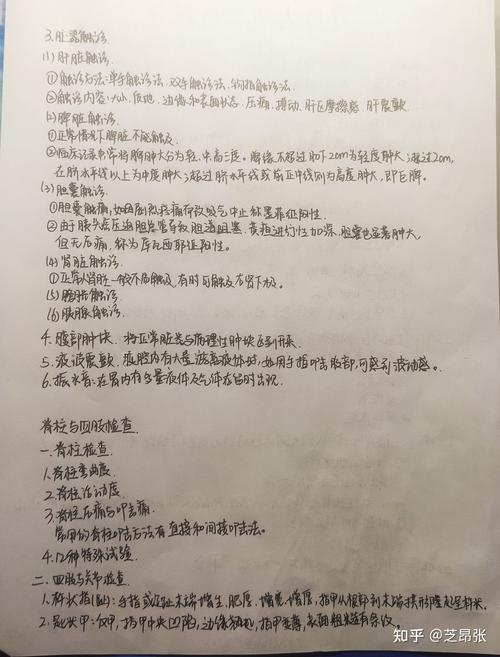 3.脏器触诊.
(1)肝脏触诊.
①触诊方法:单手触诊法,双手触诊法,钩指触诊法.
②触诊内容:大小,质地,边缘和表面状态,压痛,搏动,肝区摩擦感,肝震颤.
(2)脾脏触诊.
①正常情况下脾脏不能触及.
②临床记录中常将脾肿大分为轻、中、高三度。脾缘不超过肋下2cm为轻度肿大,超过2cm,
在脐水平线以上为中度肿大,超过脐水平线或前正中线则为高度肿大,即巨脾.
(3)胆囊触诊.
①胆囊触痛,如因剧烈疼痛而致吸气中止称墨菲征阳性.
②由于胰头癌压迫胆总管导致胆道阻塞,黄疸进行性加深,胆囊也显著肿大,
但无压痛,称为库瓦西耶征阳性.
(4)肾脏触诊.
①正常人肾脏一般不易触及,有时可触及右肾下极.
(5)膀胱触诊.
(6)胰腺触诊.
4.腹部肿块.将正常脏器与病理性肿块区别开来.
5.液波震颤.腹腔内有大量游离液体时,如用手指叩击腹部,可感到波动感.
6.振水音:在胃内有多量液体及气体存留时出现.
脊柱与四肢检查.
一.脊柱检查.
1.脊柱弯曲度.
2.脊柱活动度.
3.脊柱压痛与叩击痛.
常用的脊柱叩击方法有直接和间接叩击法.
4.几种特殊试验.
二.四肢与关节检查.
1.杵状指(趾):手指或足趾末端增生、肥厚、增宽、增厚,指甲从根部到末端拱形隆起呈杵状.
2.匙状甲:反甲,指甲中央凹陷,边缘翘起,指甲变薄,表面粗糙有条纹.
知乎 @芝昂张